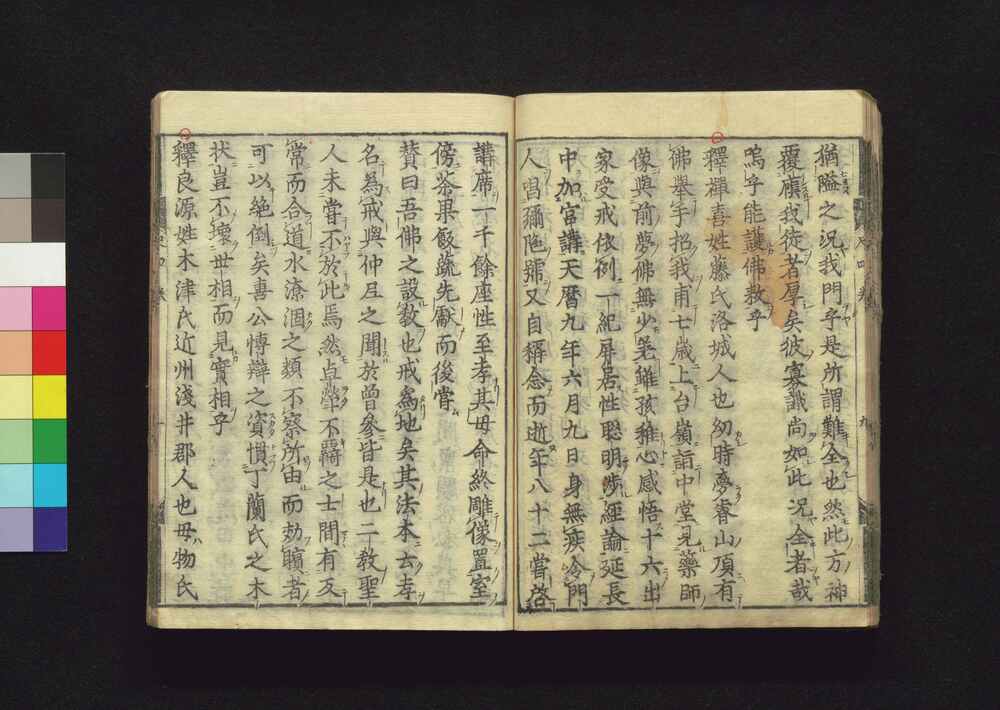 猶隘之況我門乎是所謂難全也然此方神
覆旗我徒者厚矣彼寡識尚如此況全者哉
嗚乎能護佛教乎
釋禪喜姓藤氏洛城人也幼時夢睿山頂有
佛擧手招我甫七歲上台嶺詣中堂見藥師
像與前夢佛無少差雖孩稚心感悟十六出
家受戒依例一紀屏居性聰明涉經論延長
中加冨講天曆九年六月九日身無疾令門
人唱彌陁號又自稱念而逝年八十二嘗啓
講席一千餘座性至孝其母命終雕像置室
傍茶果飯蔬先獻而後嘗
賛曰吾佛之設教也戒為地矣其法本云孝
名為戒與仲尼之聞於曾參皆是也二教聖
人未嘗不於此焉然貞犖不羇之士間有反
常而合道水潦涸之類不察所由而効矉者
可以絶倒矣喜公慱辯之資慣丁蘭氏之木
状豈不壞世相而見實相乎
釋良源姓木津氏近州淺井郡人也母物氏